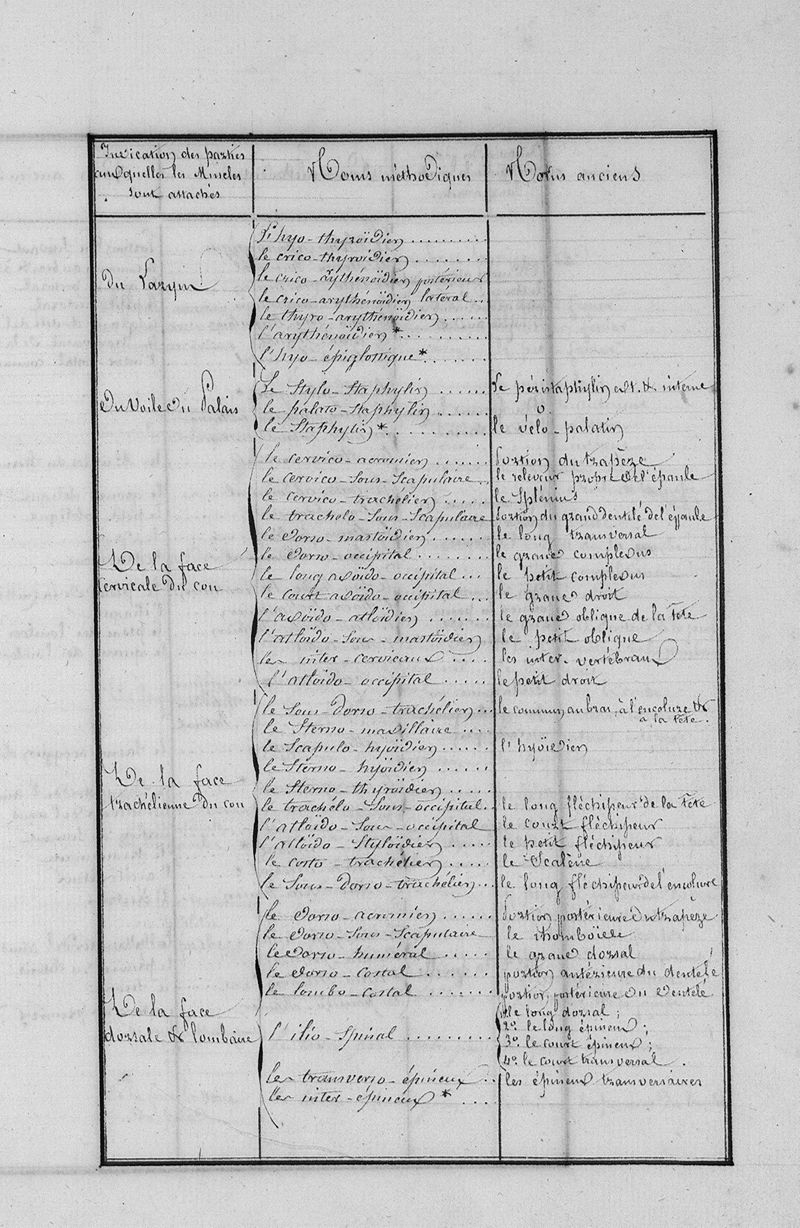 Indication des parties
auxquelles les Muscles
sont attachés
Noms méthodiques
Noms anciens
du Larynx
L'hyo-thyroïdien ........
le crico-thyroïdien ......
le crico-arythénoïdien postérieur
le crico-arythénoïdien lateral ..
le thyro-arythénoïdien ....
l'arythénoïdien * ......
l'hyo-épiglottique * ....
du voile du Palais
Le Stylo-Staphylin ..... Le péristaphylin ext. & interne
le palato-Staphylin ..... o
le Staphylin * ......... le vélo-palatin
De la face
cervicale du cou
le cervico-acromien ...... portion du trapèze
le cervico-Sous-Scapulaire .. le releveur propre de l'épaule
le cervico-trachelien ..... le Splénius
le trachelo-Sous-Scapulaire portion du grand dentelé de l'épaule
le dorso-mastoïdien ..... le long transversal
le dorso-occipital ..... le grand complexus
le long axoïdo-occipital ... le petit complexus
le court axoïdo-occipital ... le grand droit
l'axoïdo-atloïdien ...... le grand oblique de la tête
l'atloïdo-Sous-mastoïdien le petit oblique
les inter-cervicaux .... les inter-vertébraux
l'atloïdo-occipital ..... le petit droit
De la face
trachélienne du cou
le Sous-Dorso-trachélien ... le commun au bras, à l'encolure &
à la tête.
le Sterno-maxillaire ....
le Scapulo-hyoïdien ..... l'hyoïdien
le Sterno-hyoïdien ....
le Sterno-thyroïdien ....
le trachélo-Sous-occipital . le long fléchisseur de la tête
l'atloïdo-Sous-occipital le court fléchisseur
l'atloïdo-Styloïdien .... le petit fléchisseur
le costo-trachélien ..... le Scalène
le Sous-dorso-trachélien ... le long fléchisseur de l'encolure
De la face
dorsale & lombaire
le dorso-acromien ..... portion postérieure du trapèze
le dorso-Sous-Scapulaire le rhomboïde
le dorso-huméral ..... le grand dorsal
le dorso-costal ....... portion antérieure du dentelé
le lombo-costal ...... portion postérieure du dentelé
l'ilio-Spinal ........
1º le long dorsal ;
2º. le long épineux ;
3º. le court épineux ;
4º. le court transversal .
les transverso-épineux .. les épineux transversaires
les inter-épineux * ...